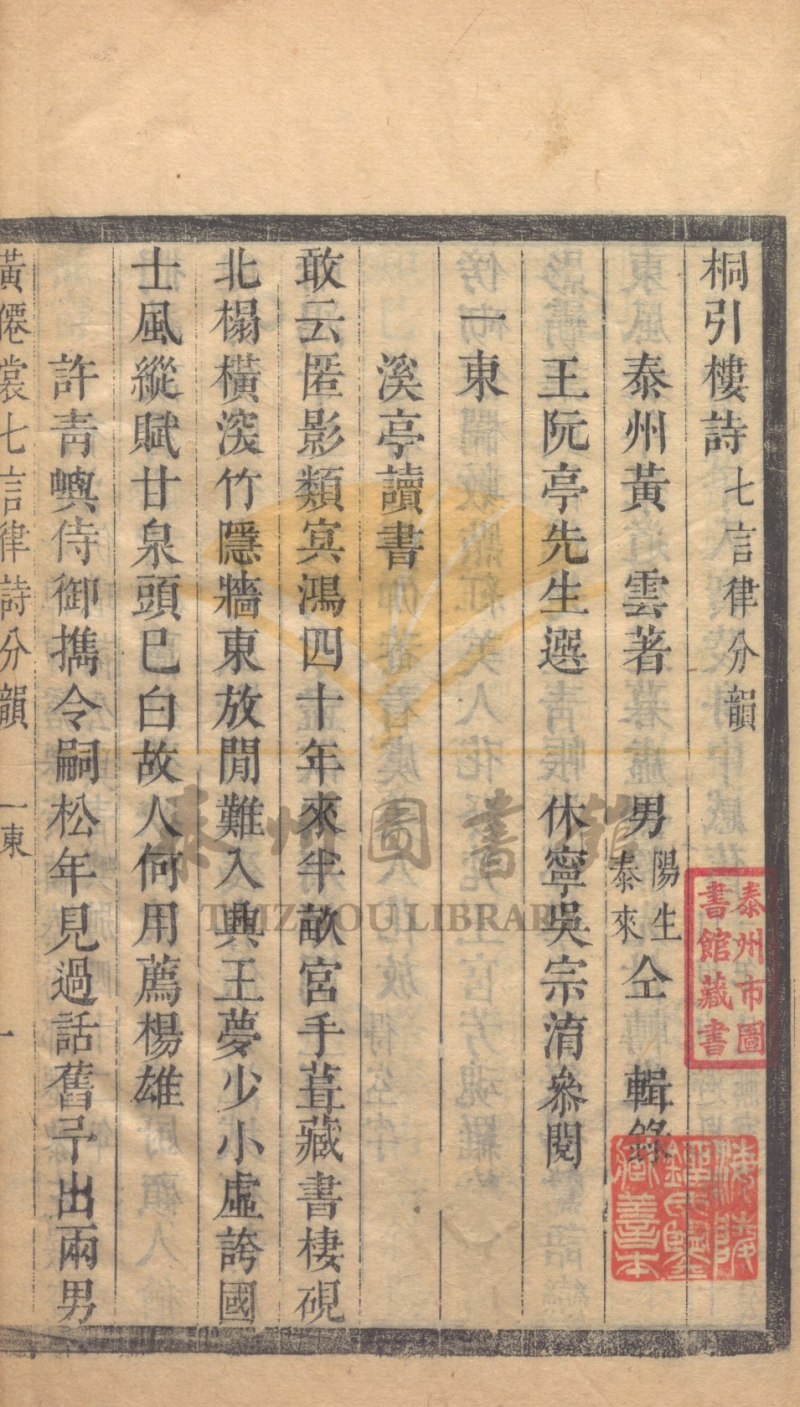 桐引樓詩 七言律分韻
泰州黃 雲著 男 陽生 泰來 仝 輯錄
王阮亭先生選 休寧吳宗淯叅閱
一東
溪亭讀書
敢云匿影類㝠鴻四十年來半畝宮手葺藏書棲硯
北榻橫深竹隱牆東放閒難入興王夢少小虛誇國
士風縱賦甘泉頭已白故人何用薦楊雄
許青嶼侍御擕令嗣松年見過話舊予出兩男
黃僊裳七言律詩分韻 一東 一
泰州市圖書館藏書
藏善本
泰州圖書館
TAIZHOU LIBRARY